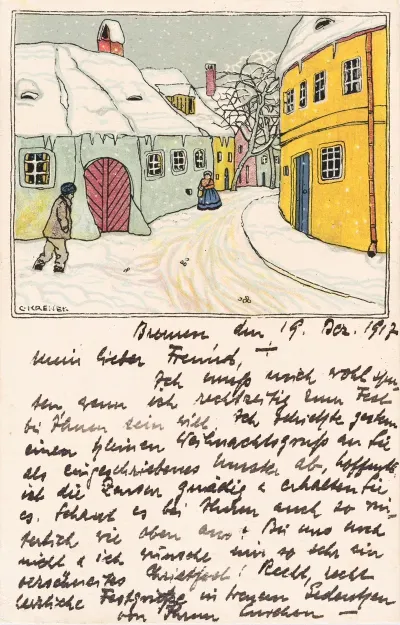 C. KRENEK
Bremen den 19. Dez. 1917
mein lieber Freund,
Ich muß mich wohl spu-
ten wenn ich rechtzeitig zum Fest
bei Ihnen sein will. Ich schickte gestern
einen kleinen Weihnachtsgruß an Sie
als eingeschriebenes Muster ab, hoffentl.
ist die Zensur gnädig & erhalten Sie
es. Schaut es bei Ihnen auch so win-
terlich wie oben aus? Bei uns noch
nicht & ich wünsche mir so sehr ein
verschneites Christfest! Recht, recht
herzliche Festgrüße in treuem Gedenken
von Ihrem